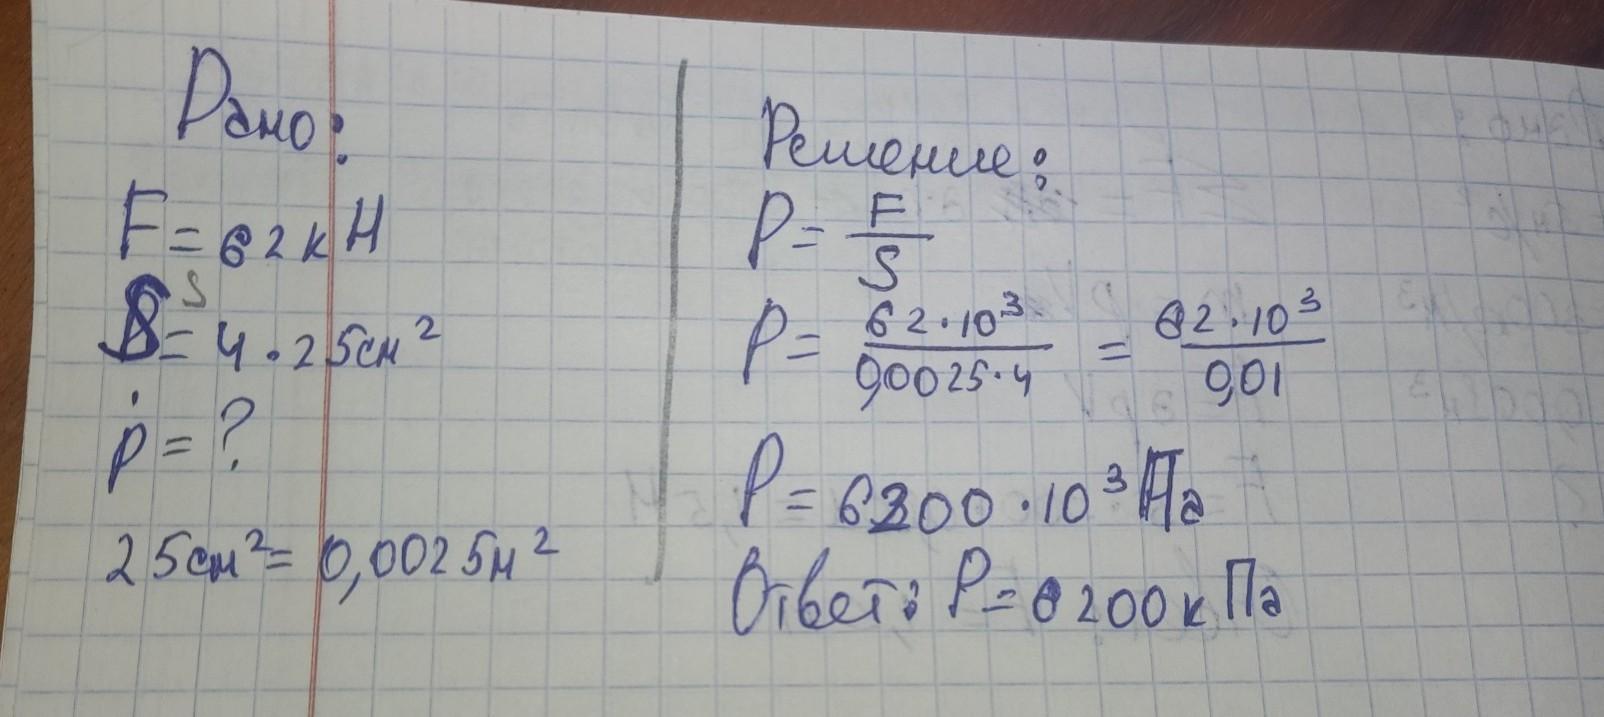 Дано:
F = 62 кН
S
S = 4 · 25 см²
p = ?
25 см² = 0,0025 м²
Решение:
P = F/S
P = 62 · 10³ / 0,0025 · 4 = 62 · 10³ / 0,01
P = 6200 · 10³ Па
Ответ: P = 6200 кПа